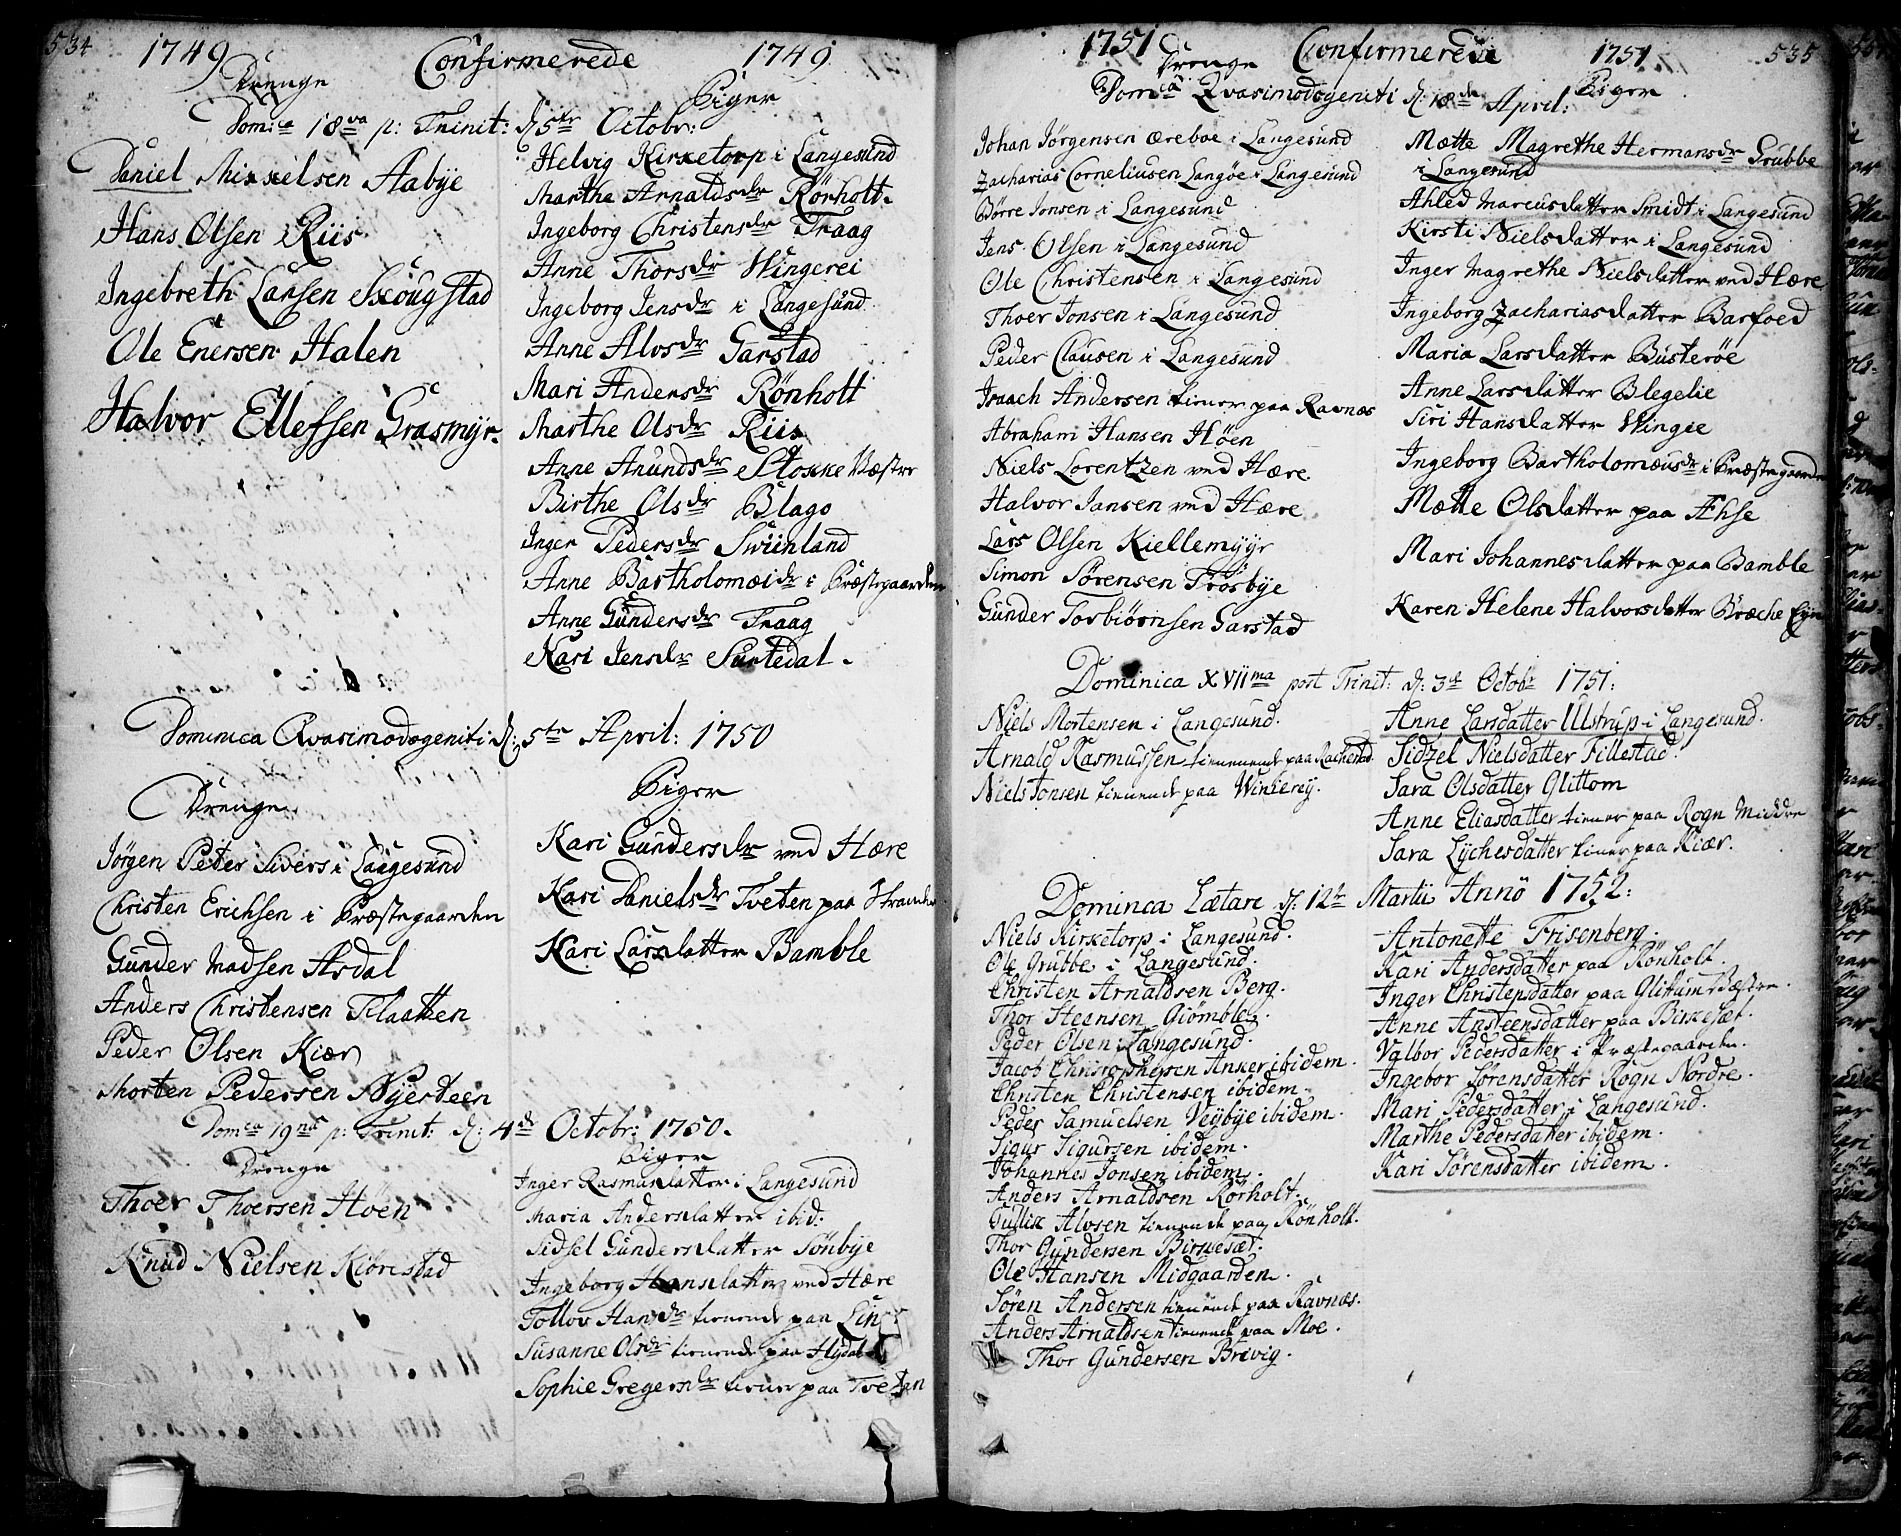 534 1749 Confirmerede 1749
Drenge Piger
Domca 18va p: Trinit: d. 5te Octobr:
Daniel Mikkelsen Aabye
Hans Olsen Riis
Ingebreth Larsen Skougstad
Ole Enersen Halen
Halvor Ellefsen Grasmyr.
Helvig Kirketorp i Langesund
Marthe Arnaldsdr Rörholt.
Ingeborg Christensdr Traag
Anne Thorsdr Wingerei
Ingeborg Jensdr i Langesund
Anne Alvsdr Garstad
Mari Andersdr Rönholt
Marthe Olsdr Riis
Anne Anundsdr Stokke Væstre
Birthe Olsdr Blago
Inger Pedersdr Swinland
Anne Bartholomæidr i Præstegaarden
Anne Gundersdr Traag
Kari Jensdr Surtedal.
Dominica Qvasimodogeniti d. 5te April: 1750
Drenge
Jörgen Peter Siders i Langesund
Christen Erichsen i Præstegaarden
Gunder Madsen Asdal
Anders Christensen Flaatten
Peder Olsen Kiær
Morten Pedersen Nyesteen
Piger
Kari Gundersdr ved Hære
Kari Danielsdr Tveten paa Strander
Kari Larsdatter Bamble
Domca 19na p: Trinit: d. 4de Octobr: 1750.
Drenge
Thoer Thoersen Höen
Knud Nielsen Kiörestad
Piger
Inger Rasmusdatter i Langesund
Maria Andersdatter ibid:
Sidsel Gundersdatter Sönbye
Ingeborg Hansdatter ved Hære
Tollov Hansdr tienende paa
Susanne Olsdr tienende paa Hydal
Sophie Gregersdr tiener paa Tvetan
1751 Confirmerede 1751 535
Drenge Piger
Domca Qvasimodogeniti d. 18de April:
Johan Jörgensen Æreboe i Langesund
Zacharias Corneliusen Langöe i Langesund
Börre Jonsen i Langesund
Jens Olsen i Langesund
Ole Christensen i Langesund
Thoer Jonsen i Langesund
Peder Clausen i Langesund
Isaach Andersen tiener paa Ravnæs
Abraham Hansen Höen
Niels Lorentzen ved Hære
Halvor Jansen ved Hære
Lars Olsen Kiellemyyr
Simon Sörensen Trosbye
Gunder Torbiörnsen Garstad
Mætte Magrethe Hermansdr Grubbe
i Langesund
Ahled Marcusdatter Smidt i Langesund
Kirsti Nielsdatter i Langesund
Inger Magrethe Nielsdatter ved Hære
Ingeborg Zachariasdatter Barfoed
Maria Larsdatter Busteröe
Anne Larsdatter Blegelie
Siri Hansdatter Wingie
Ingeborg Bartholomæusdr i Præstegaarden
Mætte Olsdatter paa Æhse
Mari Johannesdatter paa Bamble
Karen Helene Halvorsdatter Bræche Eyn
Dominica XVIIma post Trinit: d. 3de Octobr 1751:
Niels Mortensen i Langesund.
Arnald Rasmussen tienende paa Rachestad.
Niels Jonsen tienende paa Winterey.
Anne Larsdatter Ulstrup i Langesund.
Sidzel Nielsdatter Fillestad.
Sara Olsdatter Glittom
Anne Eliasdatter tiener paa Rogn Middre
Sara Lychesdatter tiener paa Kiær.
Dominca Lætare d. 12te Martii Annö 1752:
Niels Kirketorp i Langesund.
Ole Grubbe i Langesund.
Christen Arnaldsen Berg.
Thor Steensen Giömble.
Peder Olsen Langesund.
Jacob Christophersen Anker ibidem.
Christen Christensen ibidem.
Peder Samuelsen Veybye ibidem.
Sigur Sigursen ibidem.
Johannes Jonsen ibidem.
Anders Arnaldsen Rörholt.
Tullik Alvsen tienende paa Rönholt.
Thor Gundersen Birkesæt.
Ole Hansen Midgaarden.
Sören Andersen tienende paa Ravnæs.
Anders Arnaldsen tienende paa Moe.
Thor Gundersen Brevig.
Antonette Frisenberg.
Kari Andersdatter paa Rönholt.
Inger Christensdatter paa Glittum Væstre.
Anne Ansteensdatter paa Birkesæt.
Valbor Pedersdatter i Præstegaarden.
Ingebor Sörensdatter Rogn Nordre.
Mari Pedersdatter i Langesund.
Marthe Pedersdatter ibidem.
Kari Sörensdatter ibidem.